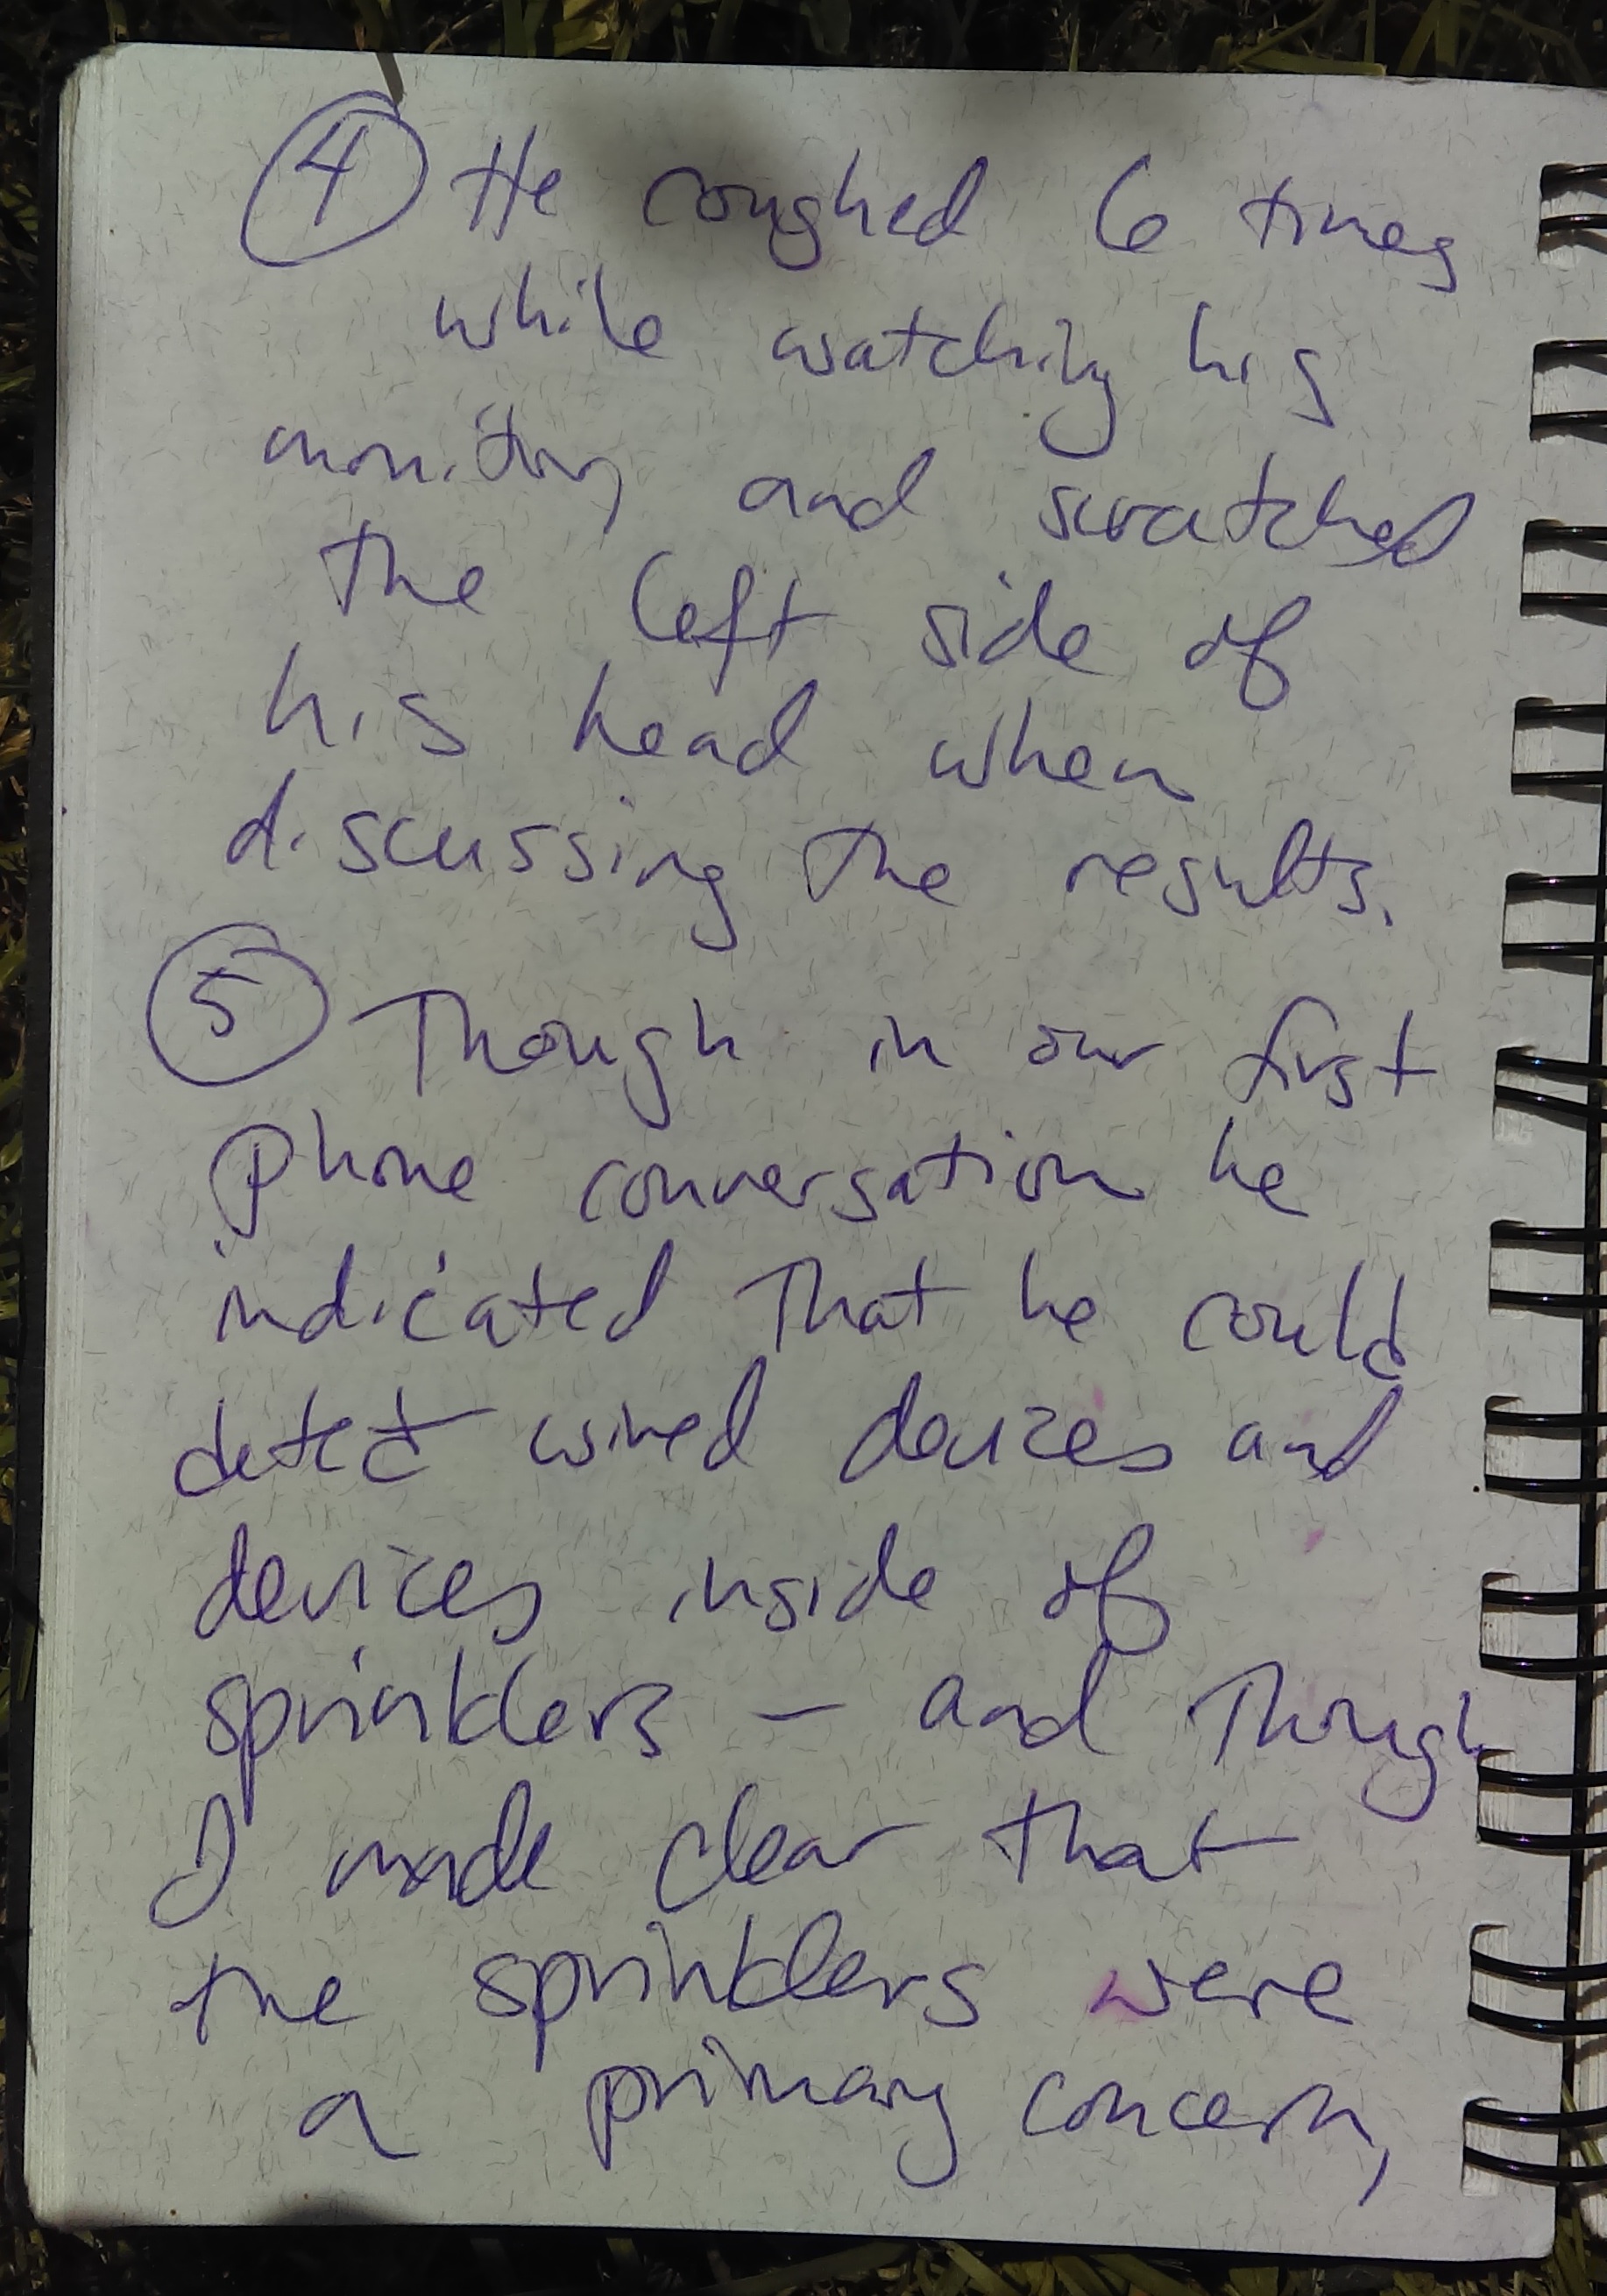 ④ He coughed 6 times
while watching his
monitor, and scratched
the left side of
his head when
discussing the results.
⑤ Though in our first
phone conversation he
indicated that he could
detect wired devices and
devices inside of
sprinklers – and though
I made clear that
the sprinklers were
a primary concern,